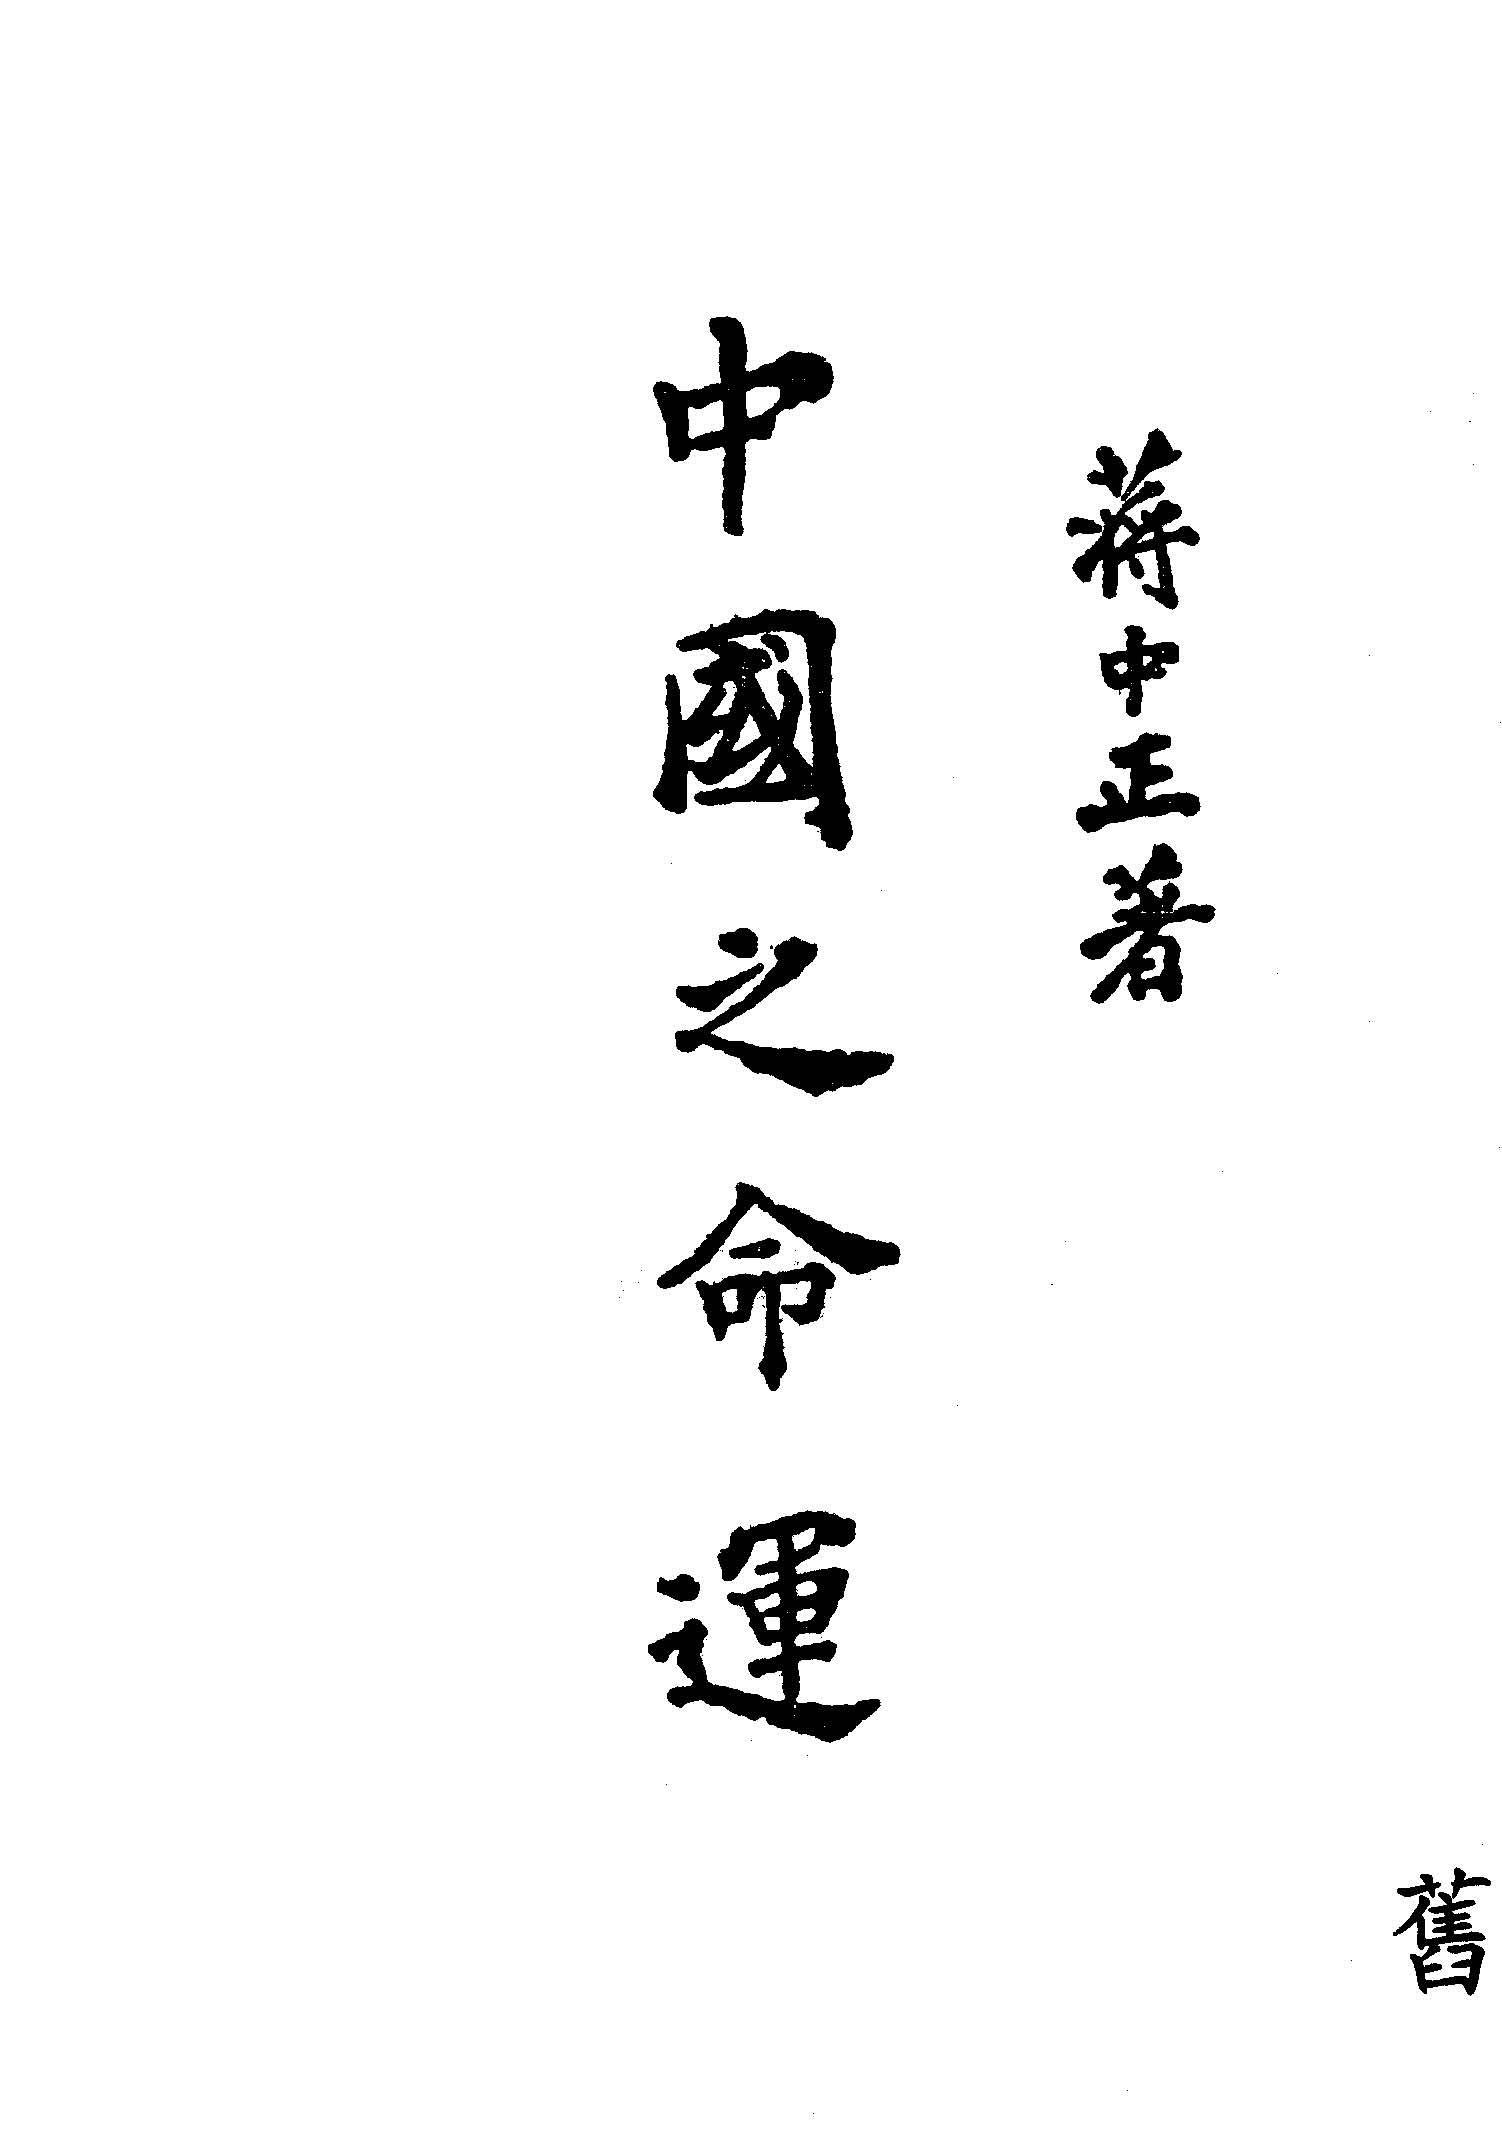 舊
蔣中正著
中國之命運